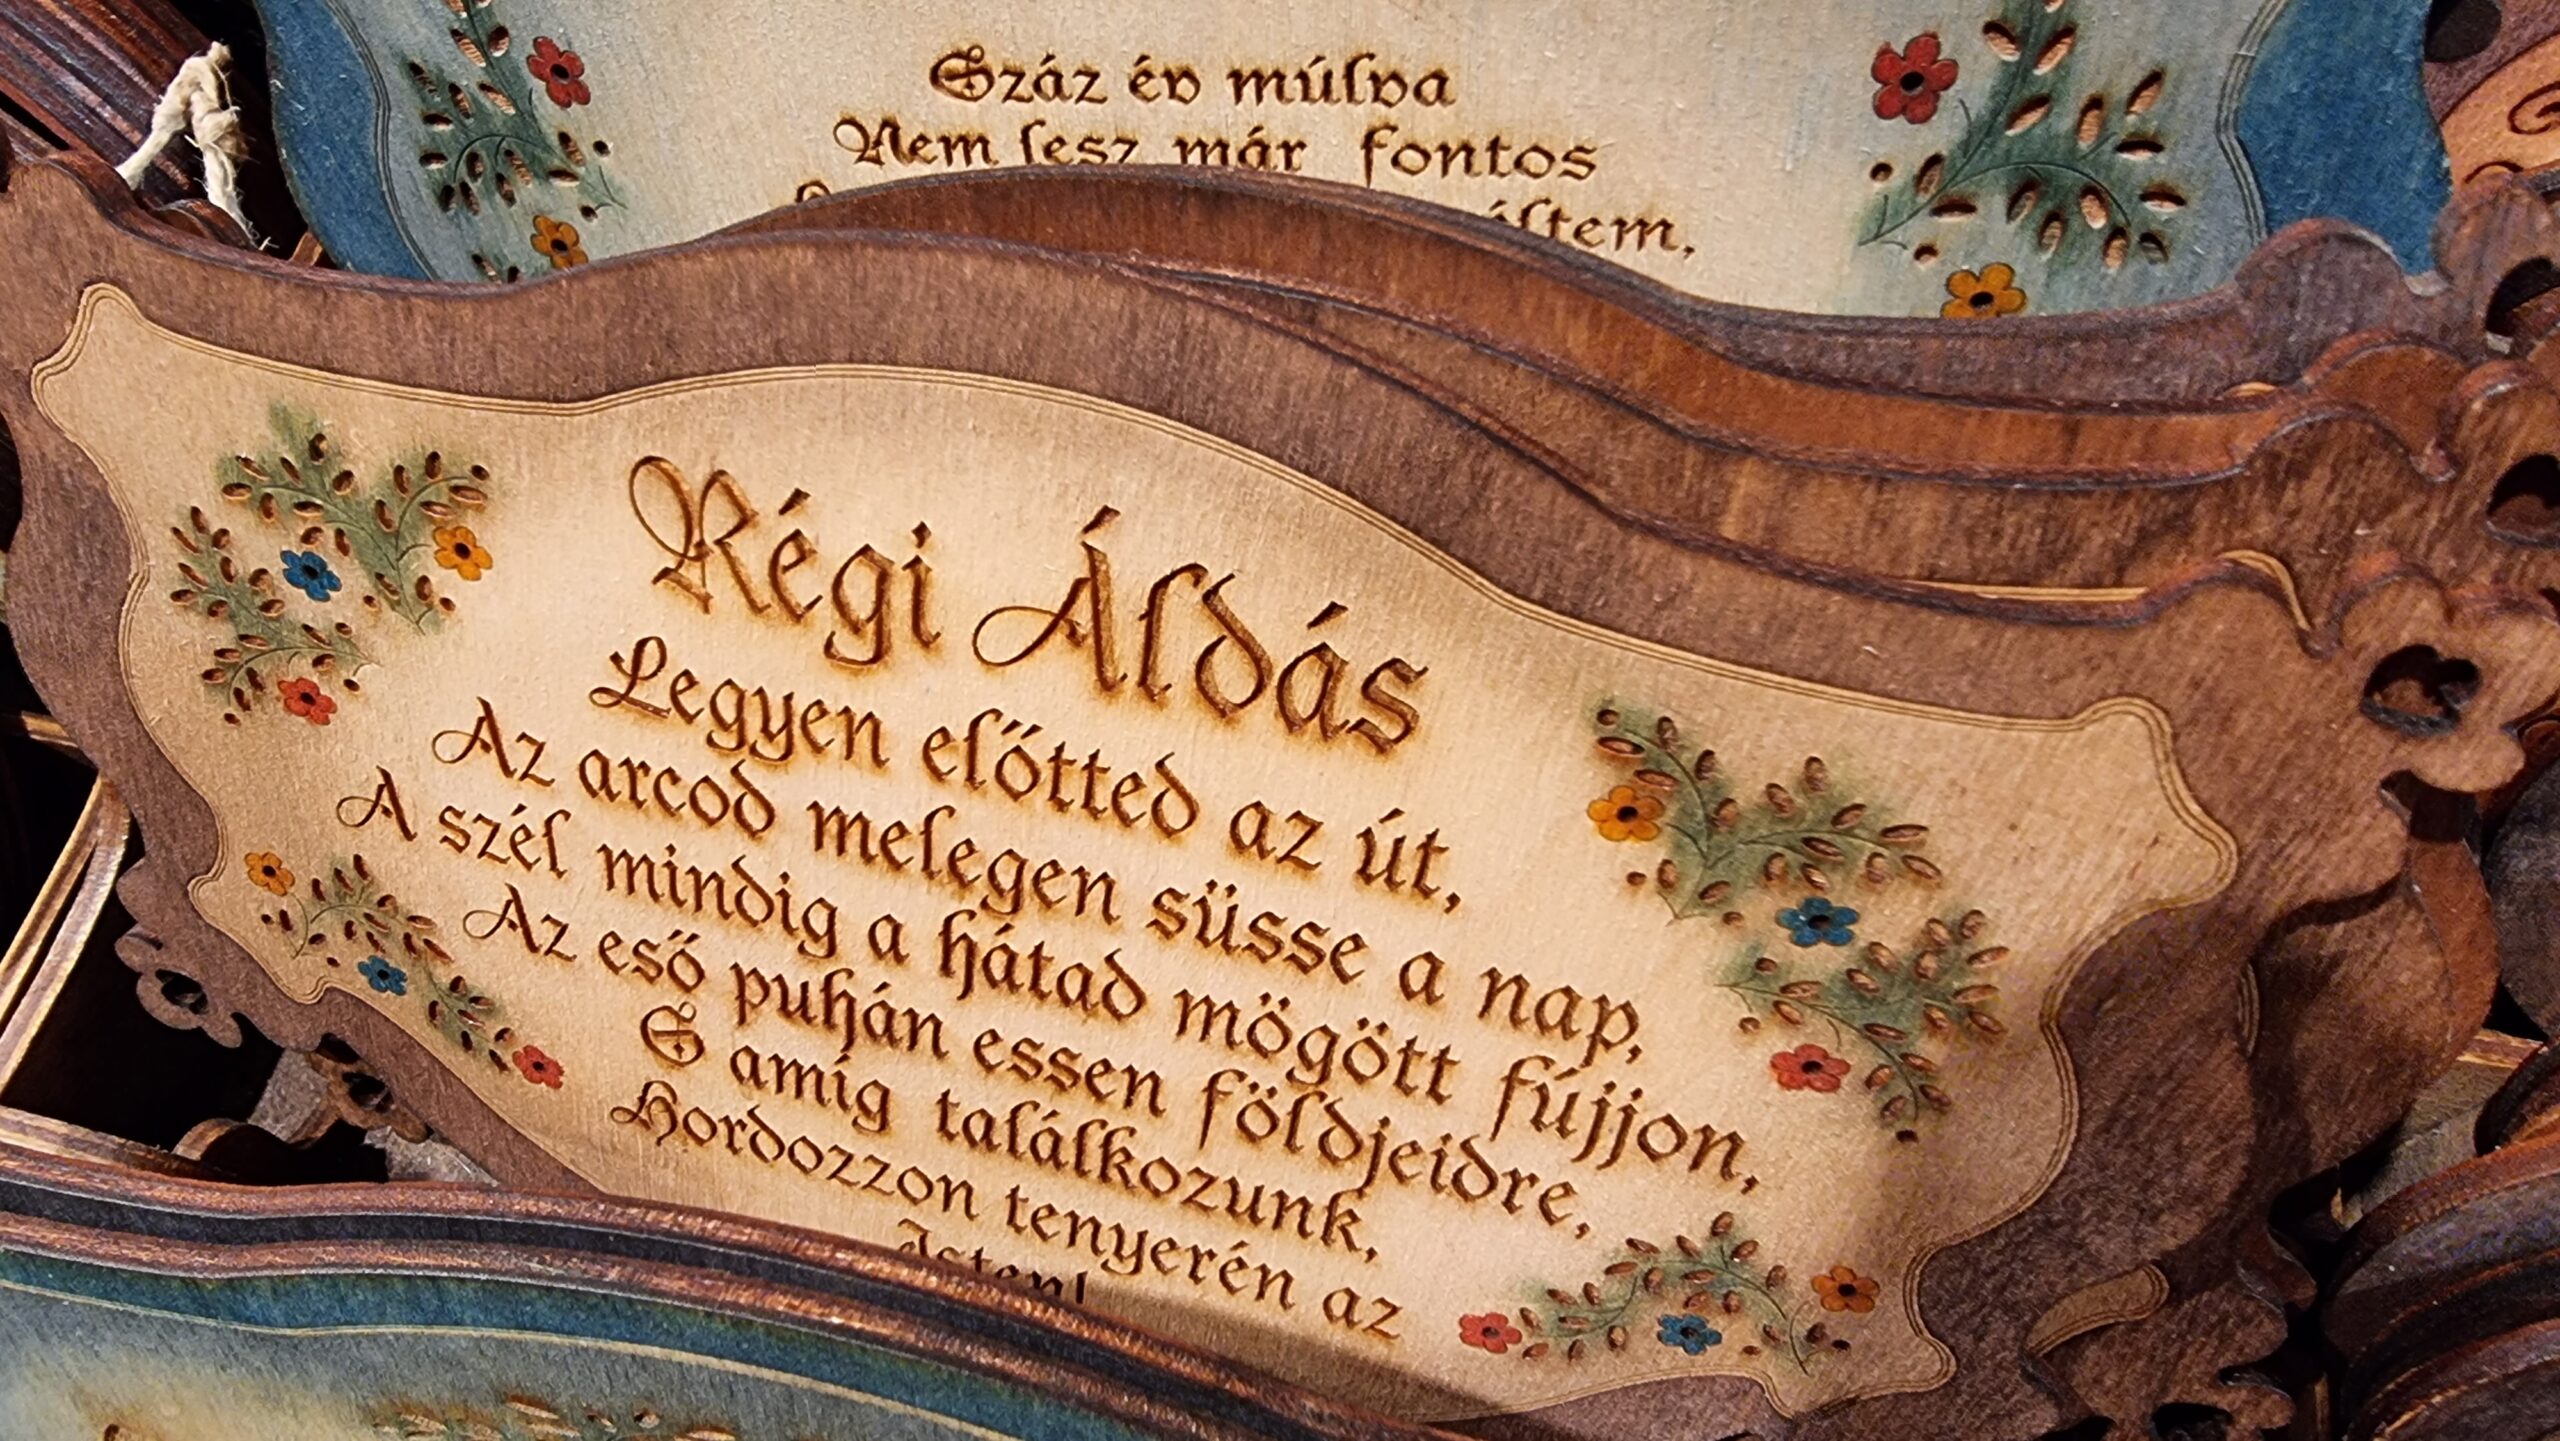 Száz év múlva
Nem lesz már fontos
Régi Áldás
Legyen előtted az út,
Az arcod melegen süsse a nap,
A szél mindig a hátad mögött fújjon,
Az eső puhán essen földjeidre,
S amíg találkozunk,
Hordozzon tenyerén az
Isten!